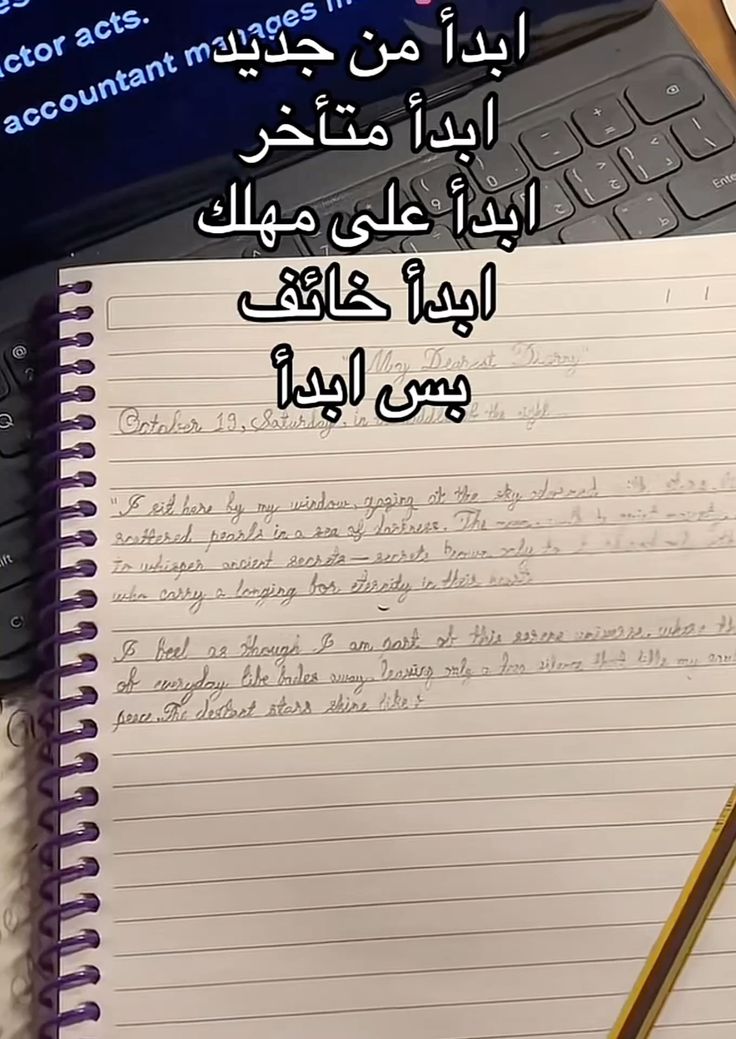 ctor acts.
accountant manages
ابدأ من جديد
ابدأ متأخر
ابدأ على مهلك
ابدأ خائف
بس ابدأ
"My Dearest Diary"
October 19, Saturday, in the night
"I sit here by my window, gazing at the sky adorned
scattered pearls in a sea of darkness. The
to whisper ancient secrets — secrets known only to
who carry a longing for eternity in their
I feel as though I am part of this serene universe, where
of everyday life fades away, leaving only a silence that fills my
peace. The distant stars shine like